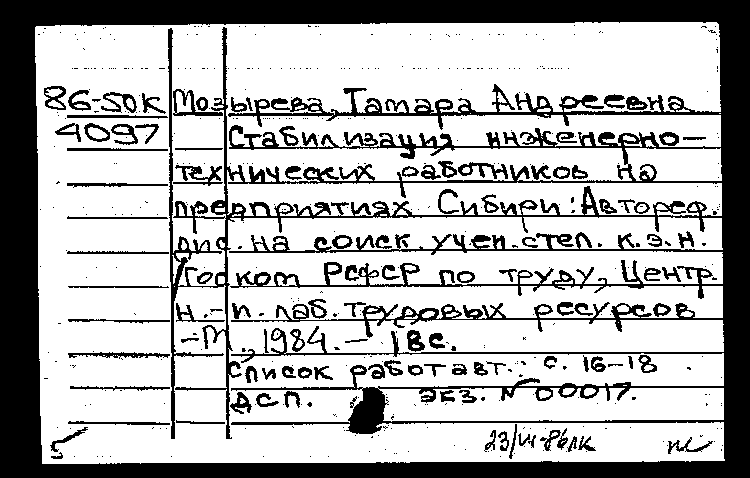 86-50К Мозырева, Тамара Андреевна
4097 Стабилизация инженерно-
технических работников на
предприятиях Сибири: Автореф.
дис. на соиск. учен. степ. к.э.н.
/Госком РСФСР по труду, Центр.
н.-и. лаб. трудовых ресурсов
-М., 1984. - 18с.
Список работ авт.: с. 16-18
ДСП. экз. №00017.
5 23/VII-86лк